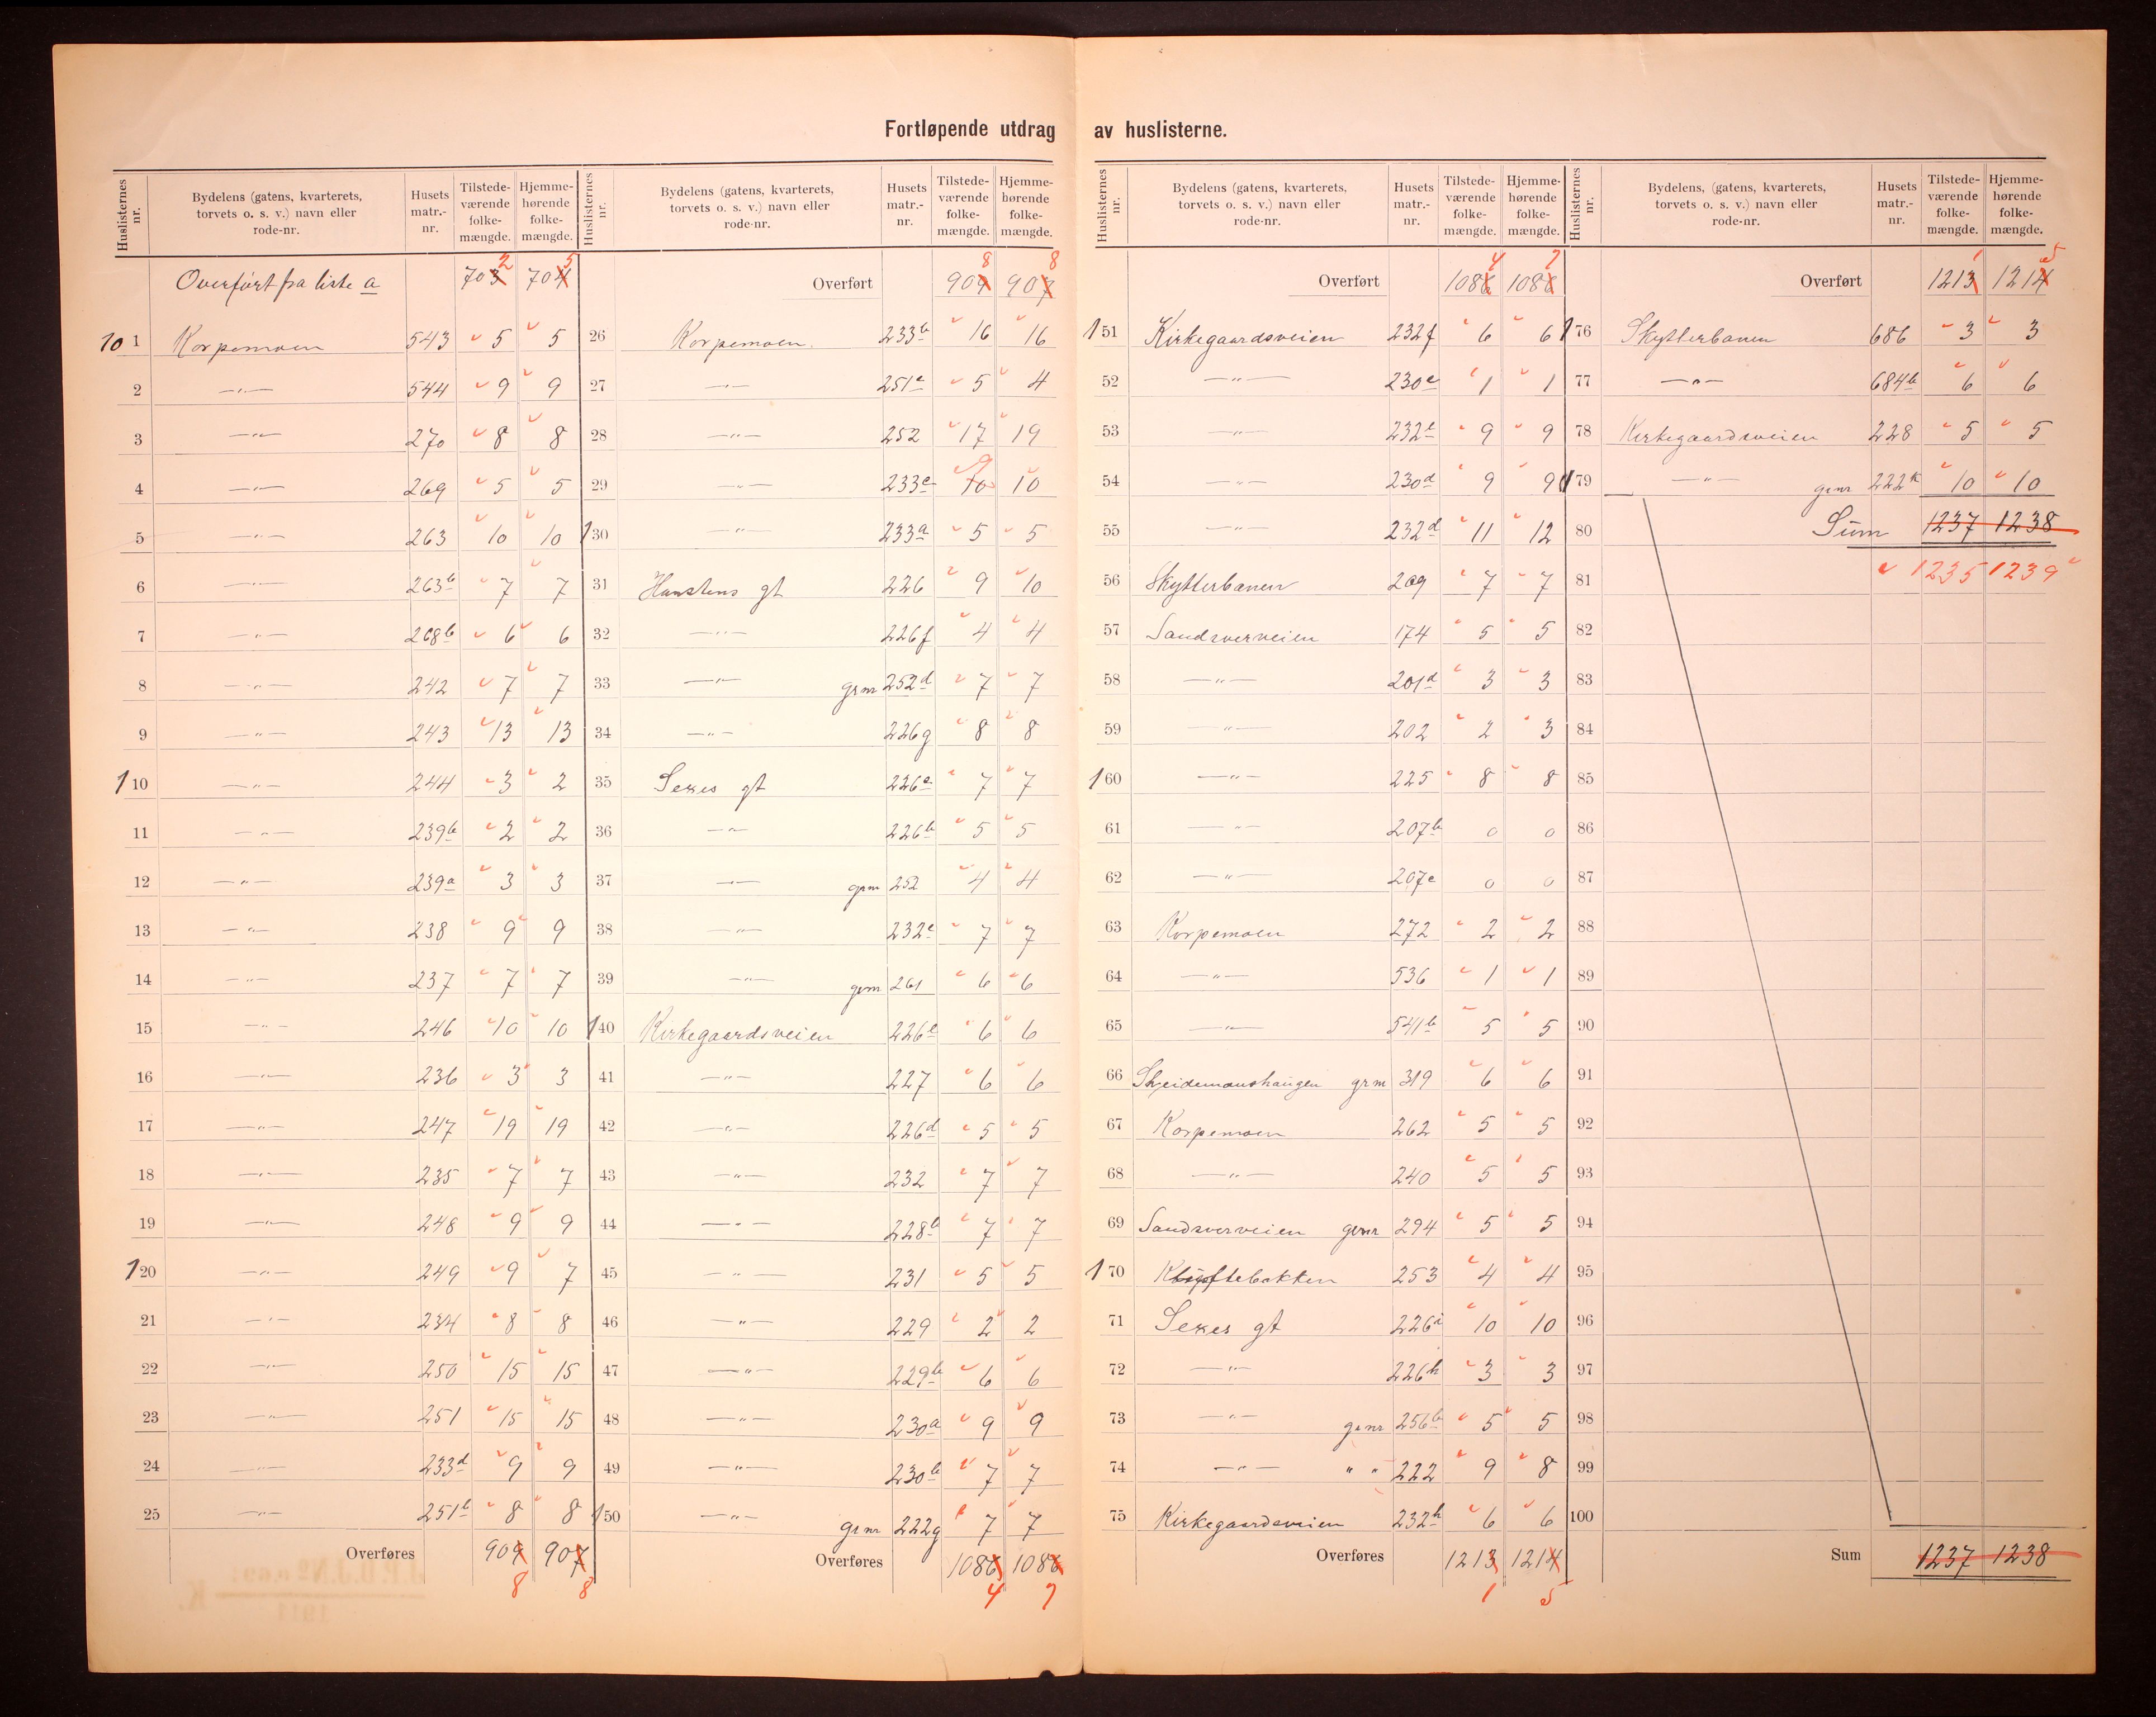 Fortløpende utdrag av huslisterne.
Huslisternes nr. Bydelens (gatens, kvarterets, torvets o. s. v.) navn eller rode-nr. Husets matr.-nr. Tilstede-værende folke-mængde. Hjemme-hørende folke-mængde.
Overført fra liste a 703 2 704 5
10 1 Korpemoen 543 5 5
2 —„— 544 9 9
3 —„— 270 8 8
4 —„— 269 5 5
5 —„— 263 10 10
6 —„— 263b 7 7
7 —„— 268b 6 6
8 —„— 242 7 7
9 —„— 243 13 13
1 10 —„— 244 3 2
11 —„— 239b 2 2
12 —„— 239a 3 3
13 —„— 238 9 9
14 —„— 237 7 7
15 —„— 246 10 10
16 —„— 236 3 3
17 —„— 247 19 19
18 —„— 235 7 7
19 —„— 248 9 9
1 20 —„— 249 9 7
21 —„— 234 8 8
22 —„— 250 15 15
23 —„— 251 15 15
24 —„— 233d 9 9
25 —„— 251b 8 8
Overføres 909 907
8 8
Huslisternes nr. Bydelens (gatens, kvarterets, torvets o. s. v.) navn eller rode-nr. Husets matr.-nr. Tilstede-værende folke-mængde. Hjemme-hørende folke-mængde.
8 8
Overført 909 907
26 Korpemoen. 233b 16 16
27 —„— 251c 5 4
28 —„— 252 17 19
29 —„— 233c 10 9 10
1 30 —„— 233a 5 5
31 Hanstens gt 226 9 10
32 —„— 226f 4 4
33 —„— grm 252d 7 7
34 —„— 226g 8 8
35 Sexes gt 226a 7 7
36 —„— 226b 5 5
37 —„— grm 252 4 4
38 —„— 232c 7 7
39 —„— grm 261 6 6
1 40 Kirkegaardsveien 226e 6 6
41 —„— 227 6 6
42 —„— 226d 5 5
43 —„— 232 7 7
44 —„— 228b 7 7
45 —„— 231 5 5
46 —„— 229 2 2
47 —„— 229b 6 6
48 —„— 230a 9 9
49 —„— 230b 7 7
1 50 —„— grnr 222g 7 7
Overføres 1086 1086
4 7
Huslisternes nr. Bydelens (gatens, kvarterets, torvets o. s. v.) navn eller rode-nr. Husets matr.-nr. Tilstede-værende folke-mængde. Hjemme-hørende folke-mængde.
4 7
Overført 1086 1086
1 51 Kirkegaardsveien 232f 6 6
52 —„— 230c 1 1
53 —„— 232e 9 9
54 —„— 230d 9 9
55 —„— 232d 11 12
56 Skytterbanen 209 7 7
57 Sandsverveien 174 5 5
58 —„— 201d 3 3
59 —„— 202 2 3
1 60 —„— 225 8 8
61 —„— 207b 0 0
62 —„— 207c 0 0
63 Korpemoen 272 2 2
64 —„— 536 1 1
65 —„— 541b 5 5
66 grm 319 6 6
67 Korpemoen 262 5 5
68 —„— 240 5 5
69 Sandsverveien grnr 294 5 5
1 70 253 4 4
71 Sexes gt 226i 10 10
72 —„— 226h 3 3
73 —„— grnr 256b 5 5
74 —„— „ „ 222 9 8
75 Kirkegaardsveien 232h 6 6
Overføres 1213 1214
1 5
Huslisternes nr. Bydelens, (gatens, kvarterets, torvets o. s. v.) navn eller rode-nr. Husets matr.-nr. Tilstede-værende folke-mængde. Hjemme-hørende folke-mængde.
1 5
Overført 1213 1214
1 76 Skytterbanen 686 3 3
77 —„— 684b 6 6
78 Kirkegaardsveien 228 5 5
1 79 —„— grnr 222k 10 10
80 Sum 1237 1238
81 1235 1239
82
83
84
85
86
87
88
89
90
91
92
93
94
95
96
97
98
99
100
Sum 1237 1238